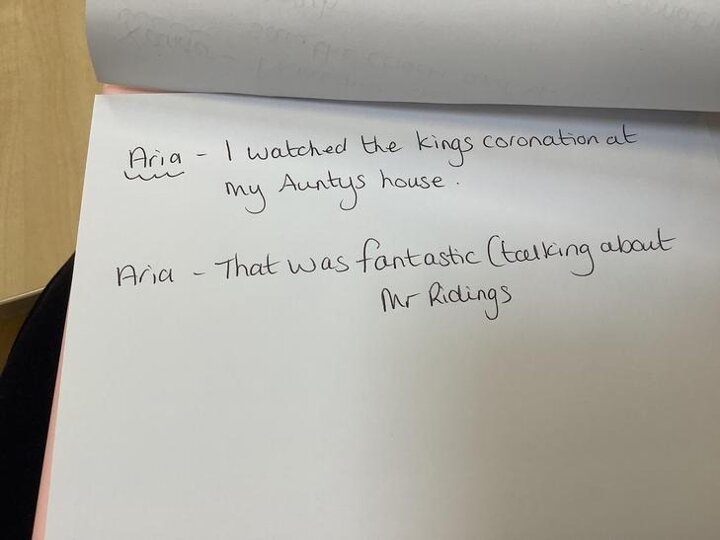 Aria - I watched the kings coronation at
my Auntys house.
Aria - That was fantastic (talking about
Mr Ridings